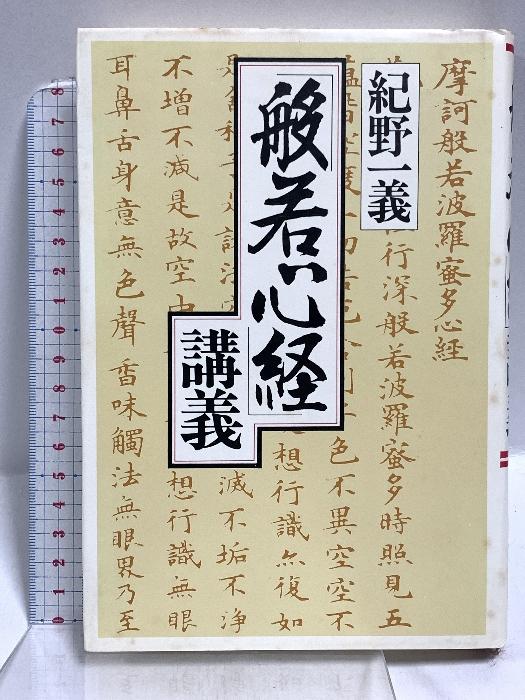 紀野一義
般若心経
講義
摩訶般若波羅蜜多心経
行深般若波羅蜜多時照見五
色不異空空不
想行識亦復如
滅不垢不浄
不増不減是故空中
想行識無眼
耳鼻舌身意無色聲香味觸法無眼界乃至
8 7 6 5 4 3 2 1 0 9 8 7 6 5 4 3 2 1 0